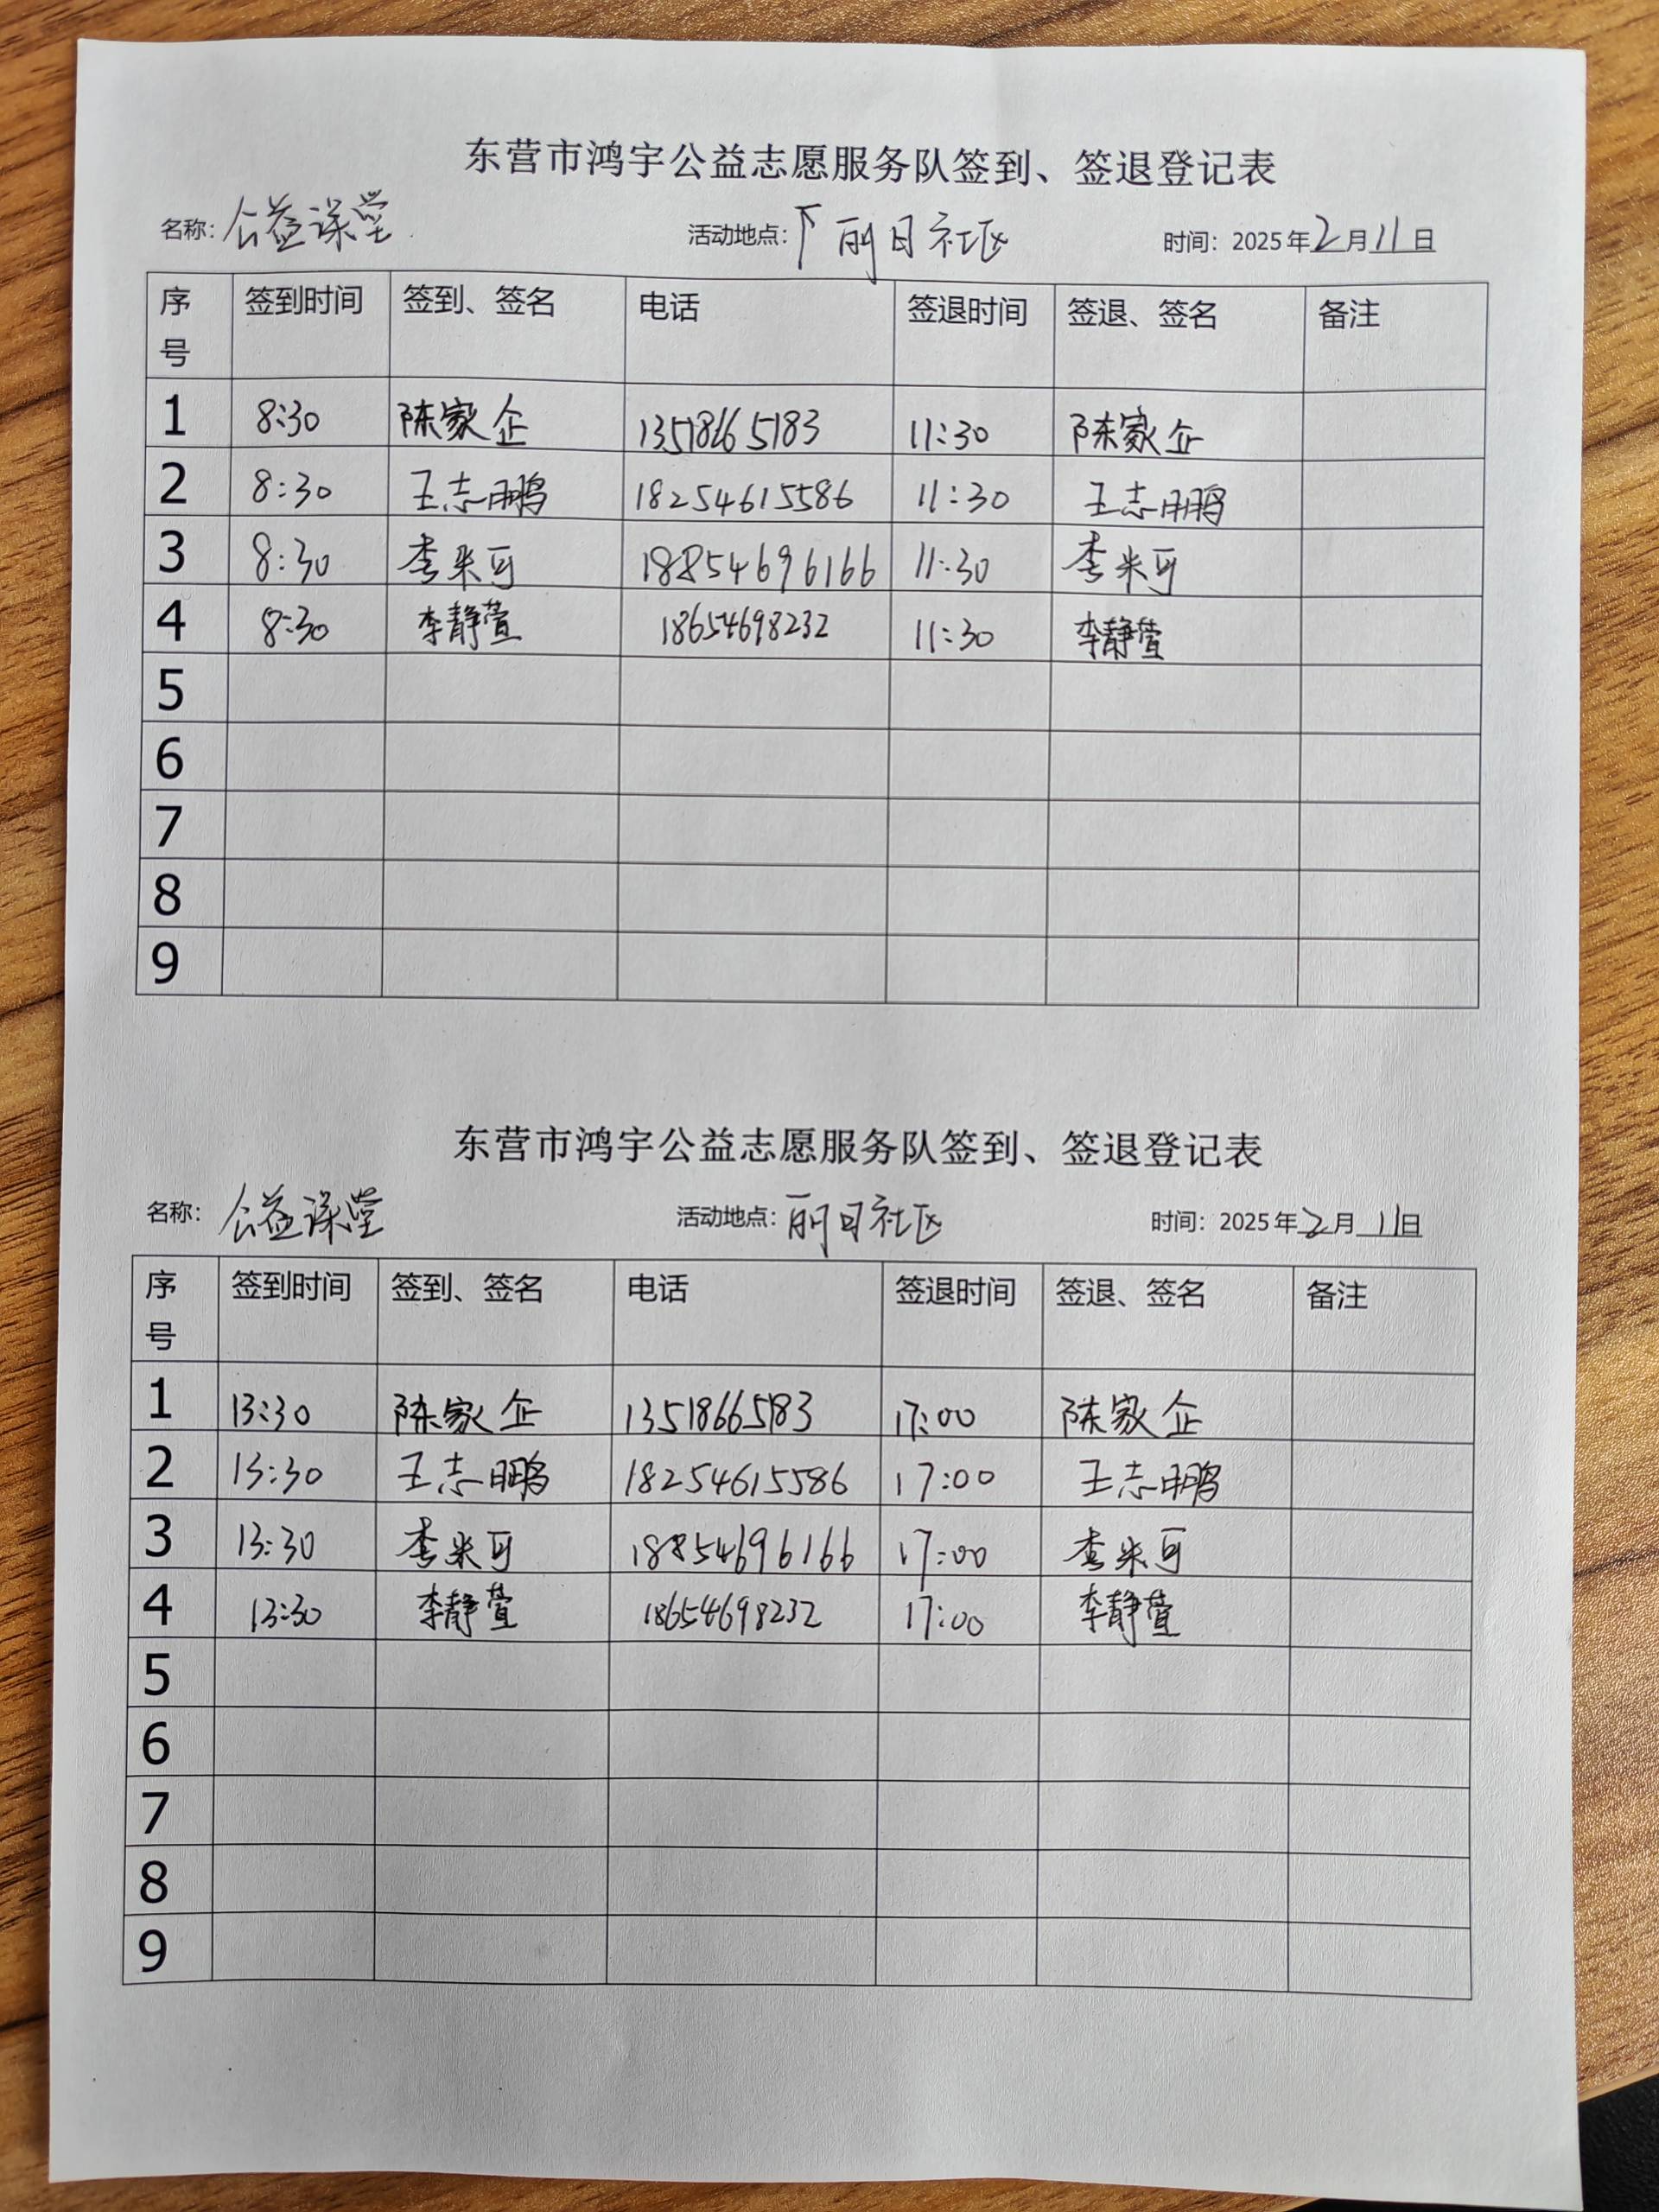 东营市鸿宇公益志愿服务队签到、签退登记表
名称：公益课堂 活动地点：丽日社区 时间：2025年2月11日
序号 签到时间 签到、签名 电话 签退时间 签退、签名 备注
1 8:30 陈家企 13518665183 11:30 陈家企
2 8:30 王志鹏 18254615586 11:30 王志鹏
3 8:30 李米可 18854696166 11:30 李米可
4 8:30 李静萱 18654698232 11:30 李静萱
5
6
7
8
9
东营市鸿宇公益志愿服务队签到、签退登记表
名称：公益课堂 活动地点：丽日社区 时间：2025年2月11日
序号 签到时间 签到、签名 电话 签退时间 签退、签名 备注
1 13:30 陈家企 13518665183 17:00 陈家企
2 13:30 王志鹏 18254615586 17:00 王志鹏
3 13:30 李米可 18854696166 17:00 李米可
4 13:30 李静萱 18654698232 17:00 李静萱
5
6
7
8
9